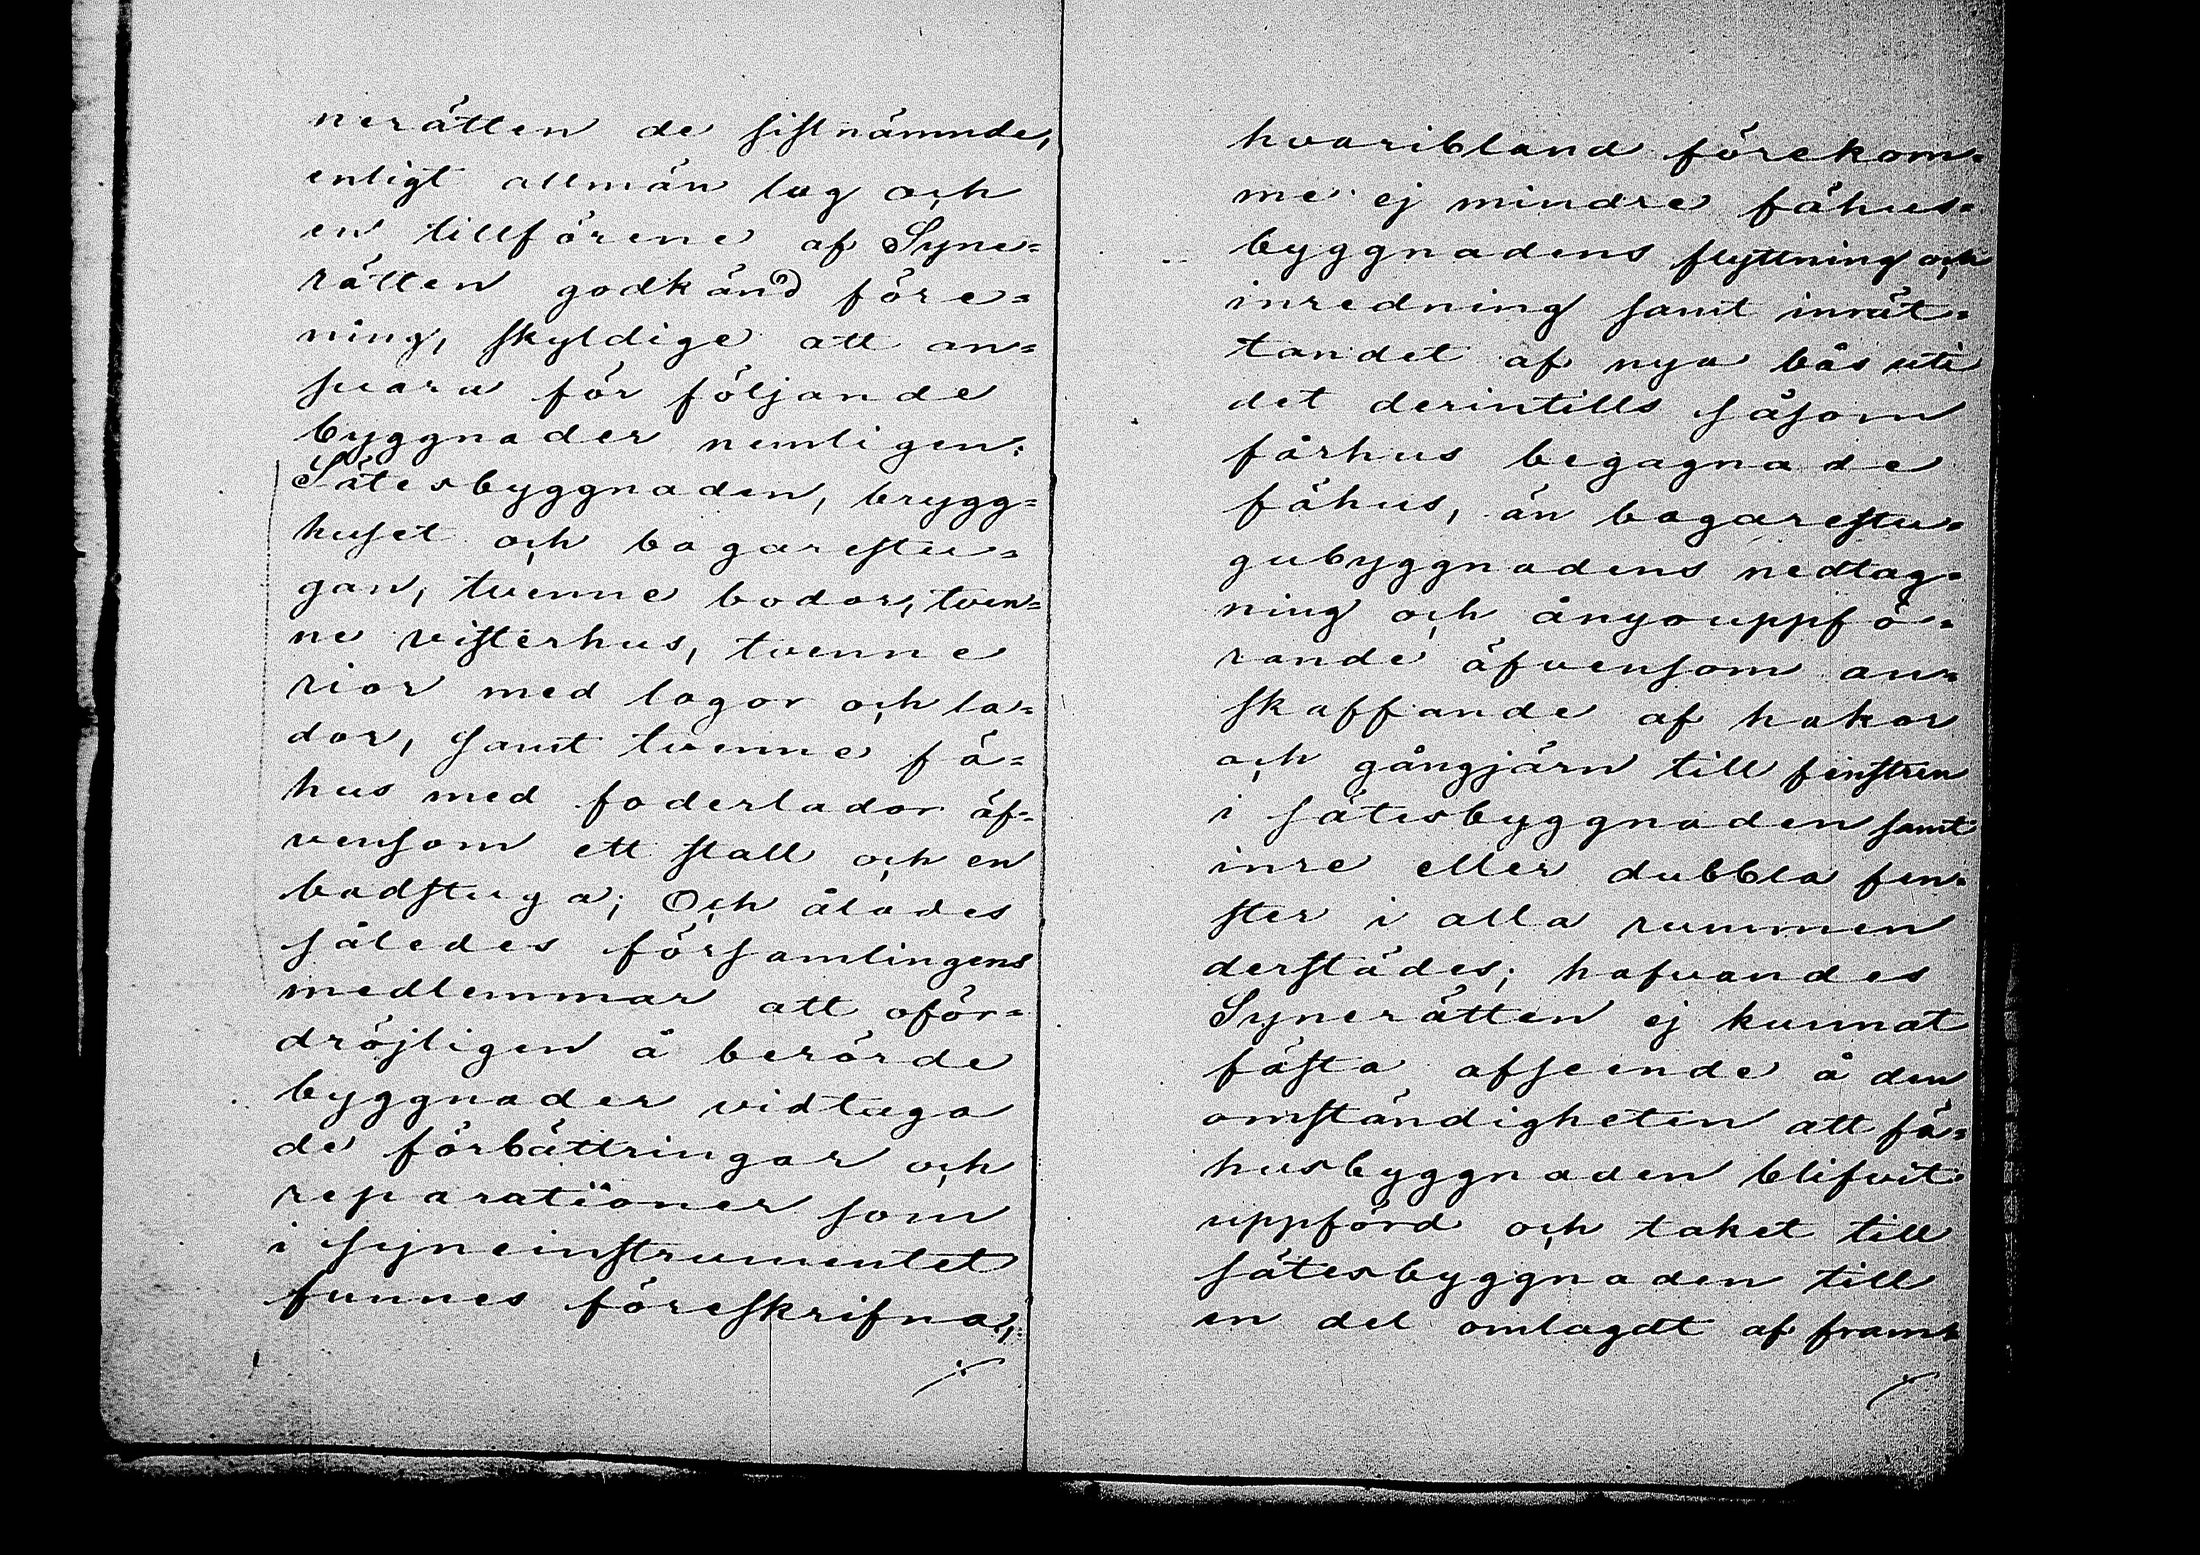 nerätten de sistnämnde,
enligt allmän lag och
en tillförene af Syne=
rätten godkänd före=
ning, skyldige att an=
svara för följande
byggnader nemligen:
Sätesbyggnaden, brygg=
huset och bagarestu=
gan, tvenne bodar, tven=
ne visterhus, tvenne
rior med lagor och la=
dor, samt tvenne fä=
hus med foderlador äf=
vensom ett stall och en
badstuga; Och ålades
således församlingens
medlemmar att oför=
dröjligen å berörde
byggnader vidtaga
de förbättringar och
reparationer som
i syneinstrumentet
funnes föreskrifna,
hvaribland förekom=
me ej mindre fähus=
byggnadens flyttning och
inredning samt inrät=
tandet af nya bås uti
det derintills såsom
fårhus begagnade
fähus, än bagarestu=
gubyggnadens nedtag=
ning och ånyouppfö=
rande äfvensom an=
skaffande af hakar
och gångjärn till fenstren
i sätesbyggnaden samt
inre eller dubbla fen=
ster i alla rummen
derstädes; hafvandes
Synerätten ej kunnat
fästa afseende å den
omständigheten att fä=
husbyggnaden blifvit
uppförd och taket till
sätesbyggnaden till
en del omlagdt af fram=